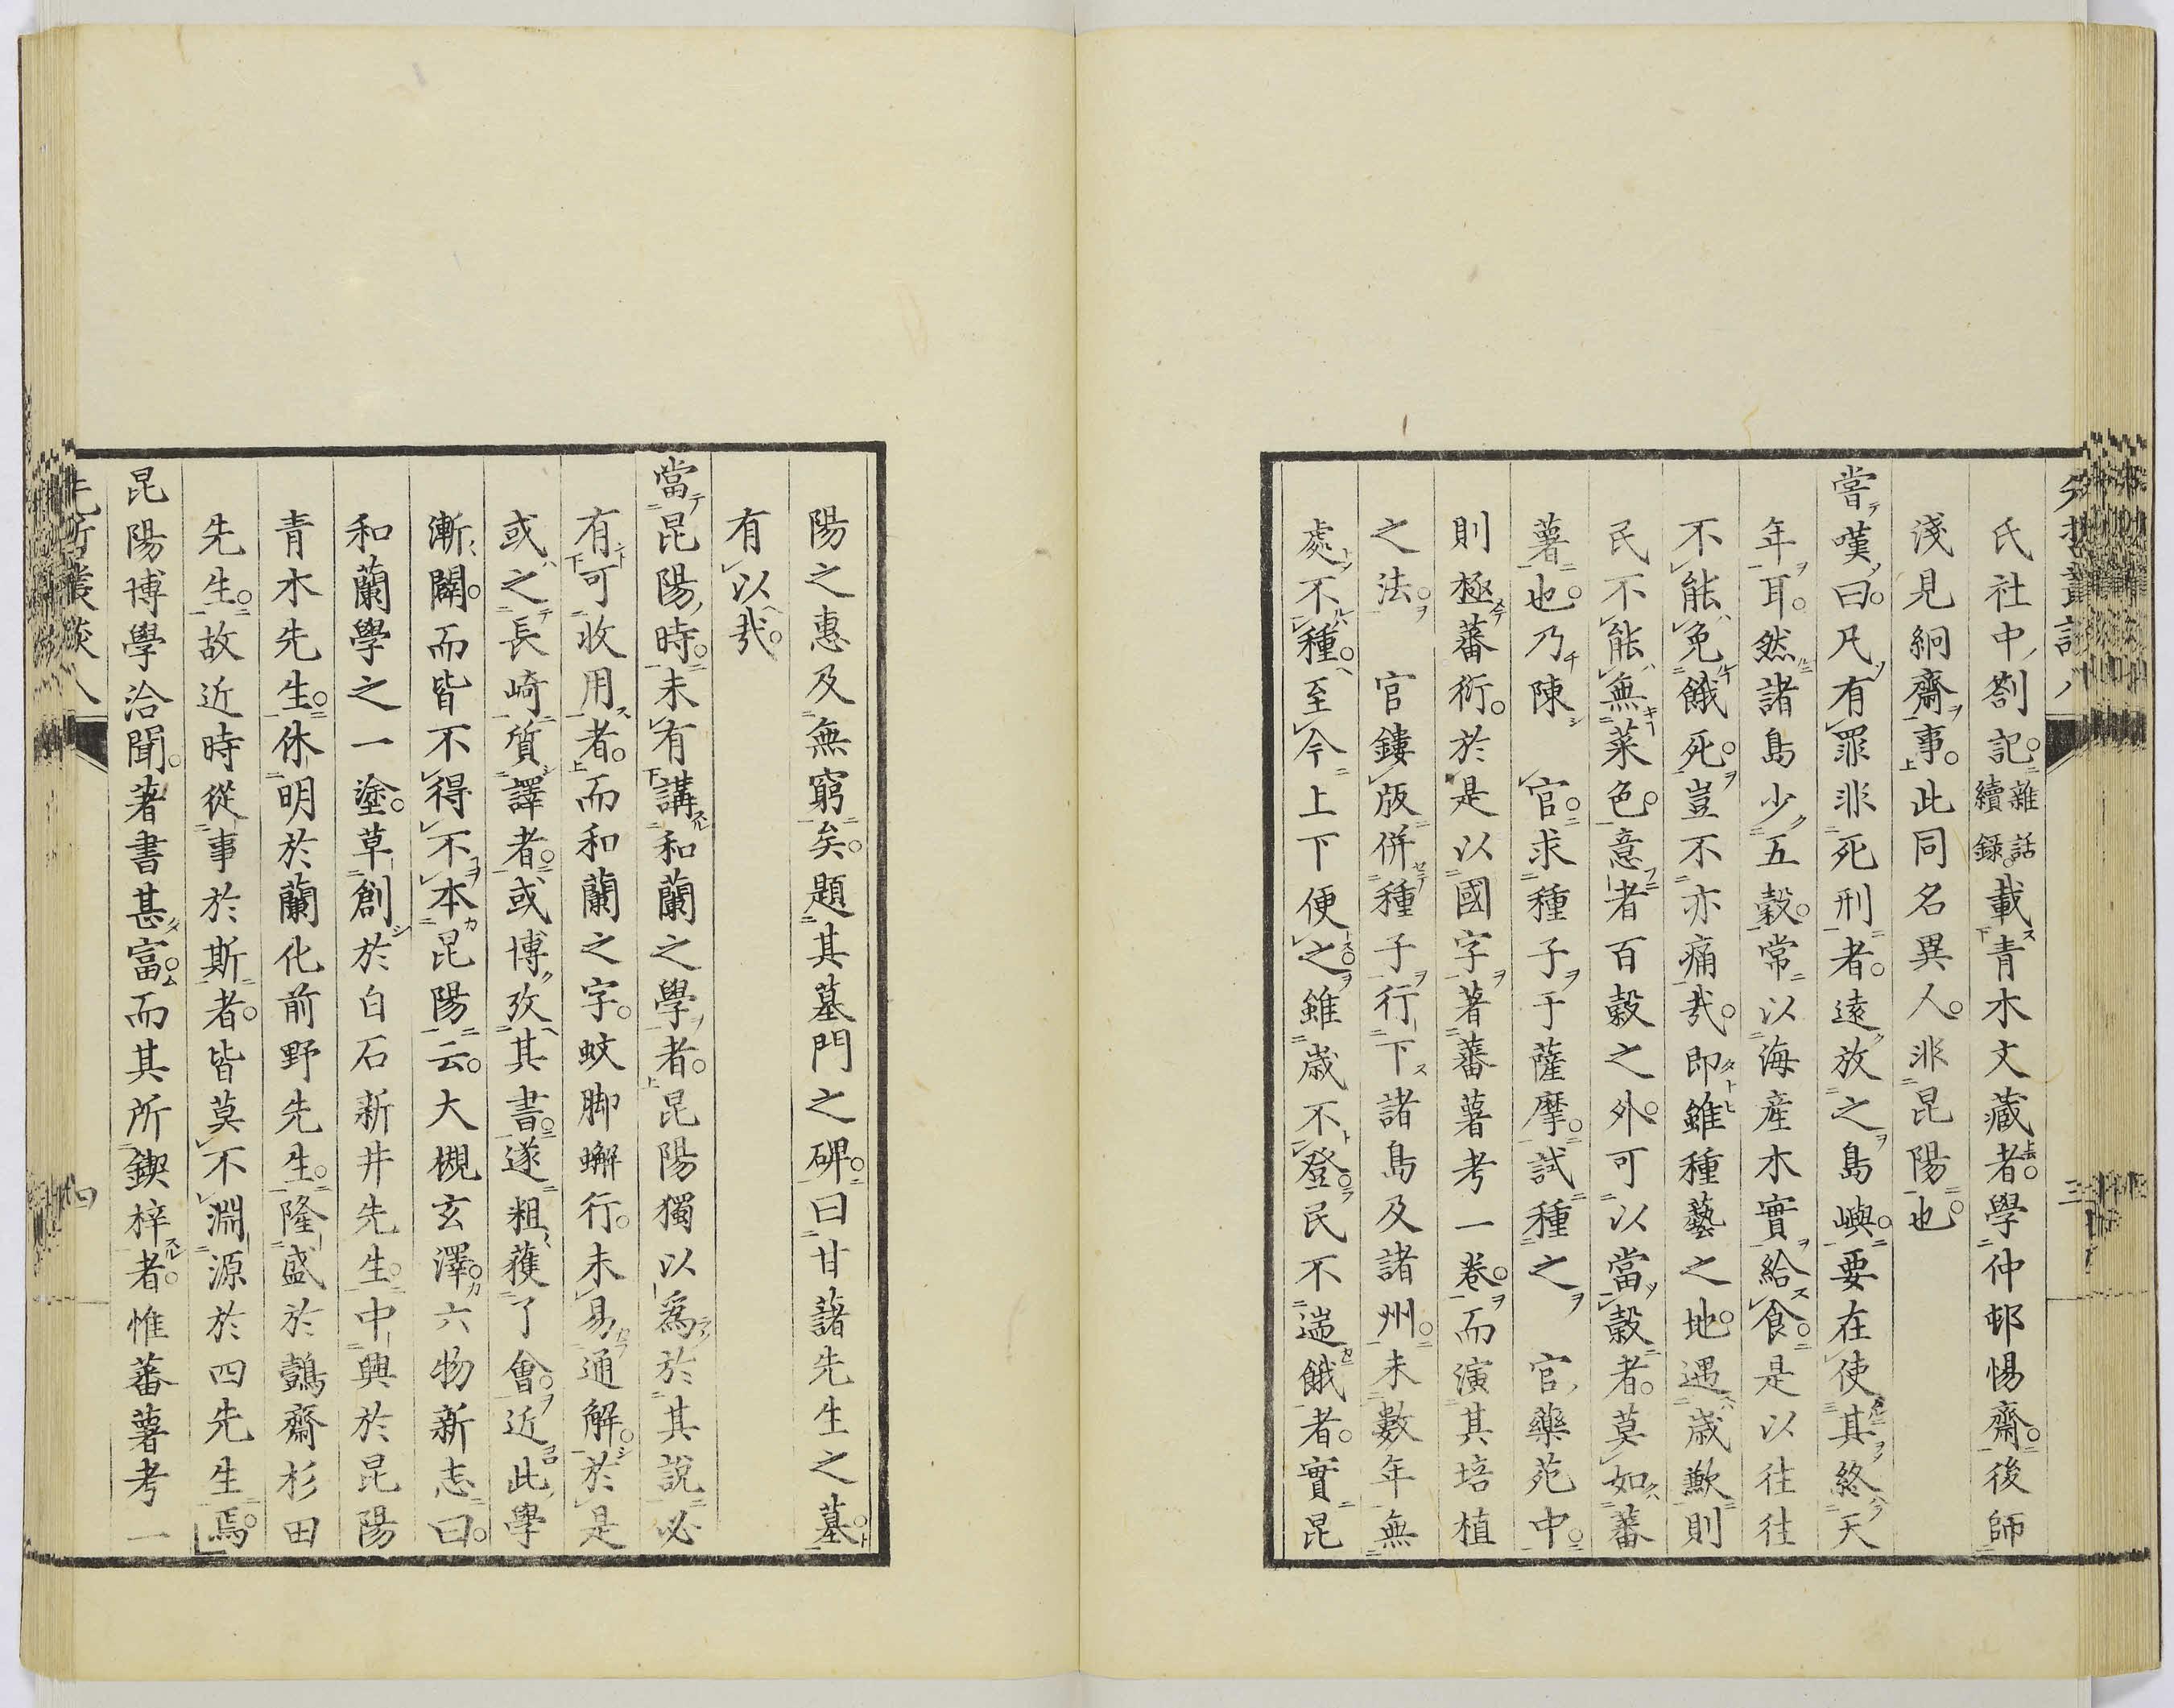 氏社中劄記雜話續錄載青木文藏者學仲邨惕齋後師
淺見絅齋事此同名異人非昆陽也
嘗嘆曰凡有罪非死刑者遠放之島嶼要在使其終天
年耳然諸島少五穀常以海產木實給食是以往往
不能免餓死豈不亦痛哉即雖種藝之地遇歲歉則
民不能無菜色意者百穀之外可以當穀者莫如蕃
薯也乃陳 官求種子于薩摩試種之 官藥苑中
則極蕃衍於是以國字著蕃薯考一卷而演其培植
之法 官鏤版併種子行下諸島及諸州未數年無
處不種至今上下便之雖歲不登民不遄餓者實昆
陽之惠及無窮矣題其墓門之碑曰甘藷先生之墓
有以哉
當昆陽時未有講和蘭之學者昆陽獨以爲於其說必
有可收用者而和蘭之字蚊脚蠏行未易通解於是
或之長崎質譯者或博攷其書遂粗獲了會近此學
漸闢而皆不得不本昆陽云大槻玄澤六物新志曰
和蘭學之一塗草創於白石新井先生中興於昆陽
青木先生休明於蘭化前野先生隆盛於鷧齋杉田
先生故近時從事於斯者皆莫不淵源於四先生焉
昆陽博學洽聞著書甚富而其所鍥梓者惟蕃薯考一